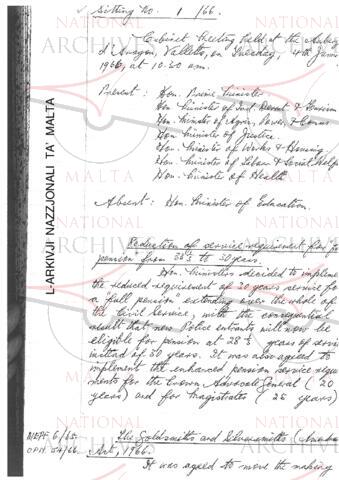 Sitting No. 1/66.
Cabinet Meeting held at the Auberge
d'Aragon, Valletta, on Tuesday, 4th
1966, at 10.30 am.
Present: Hon. Prime Minister
Hon. Minister of Ind. Devt. & Tourism
Hon. Minister of Agric., Power, & Comns
Hon. Minister of Justice
Hon. Minister of Works & Housing
Hon. Minister of Labour & Social Welf
Hon. Minister of Health
Absent: Hon. Minister of Education.
Reduction of service requirement for
pension from 33⅓ to 30 years.
Hon. Ministers decided to impleme
the reduced requirement of 30 years service fo
a "full pension" extending over the whole of
the Civil Service, with the consequential
result that new Police entrants will now be
eligible for pension at 28⅓ years of servi
instead of 30 years. It was also agreed to
implement the enhanced pension service requ
ments for the Crown Advocate General (20
years) and for Magistrates (25 years)
MEPF 6/65
OPM 54/66
The Goldsmiths and Silversmiths
Act, 1966.
It was agreed to move the making
L-ARKIVJI NAZZJONALI TA' MALTA
NATIONAL
ARCHIVES
MALTA